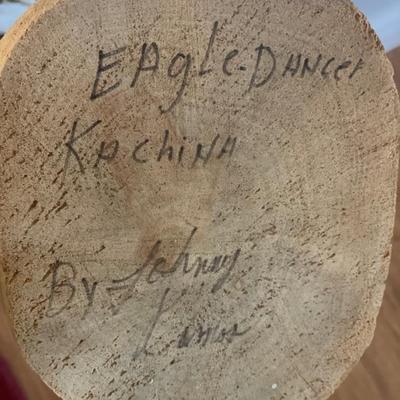 EAglE-DANCEr
KAChiNA
By Johnny